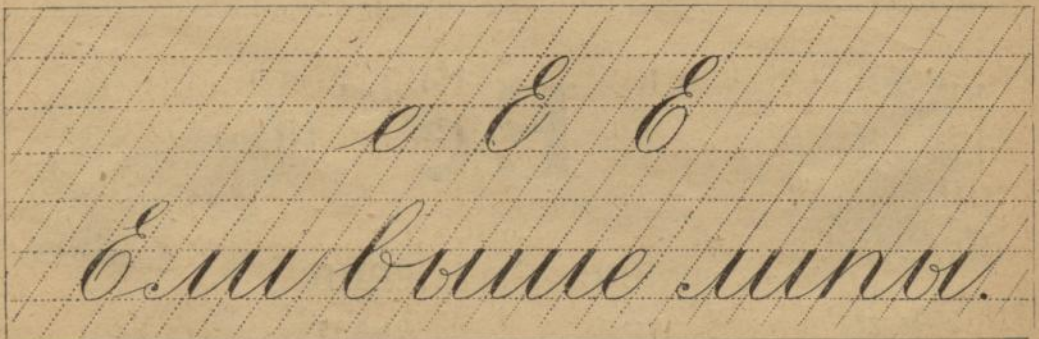 е Е Е
Ели выше липы.